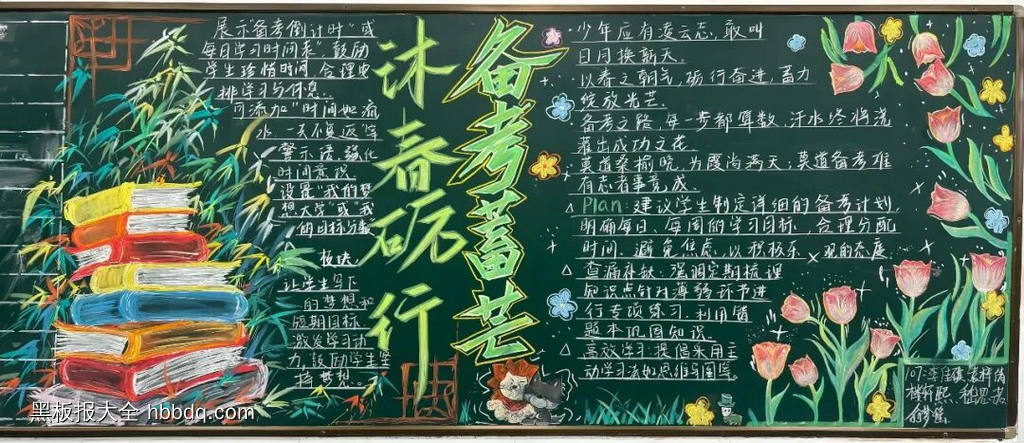 备考蓄芒
沐春砺行
展示"备考倒计时"或
每日学习时间表"鼓励
学生珍惜时间,合理安
排学习与休息.
可添加"时间如流
水一去不复返"等
警示语,强化
时间意识
设置"我的梦
想大学"或"我
的目标分数
板块.
让学生写下
的梦想和
短期目标
激发学习动
力,鼓励学生坚
持梦想..
少年应有凌云志,敢叫
日月换新天.
以春之朝气,砺行奋进,蓄力
绽放光芒.
备考之路,每一步都算数,汗水终将浇
灌出成功之花.
莫道桑榆晚,为霞尚满天;莫道备考难
有志者事竟成.
△ Plan:建议学生制定详细的备考计划,
明确每日、每周的学习目标,合理分配
时间,避免焦虑,以积极乐观的态度.
△ 查漏补缺:强调定期梳理
知识点针对薄弱环节进
行专项练习,利用错
题本巩固知识.
△ 高效学习:提倡采用主
动学习法如思维导图等.
黑板报大全 hbbdq.com